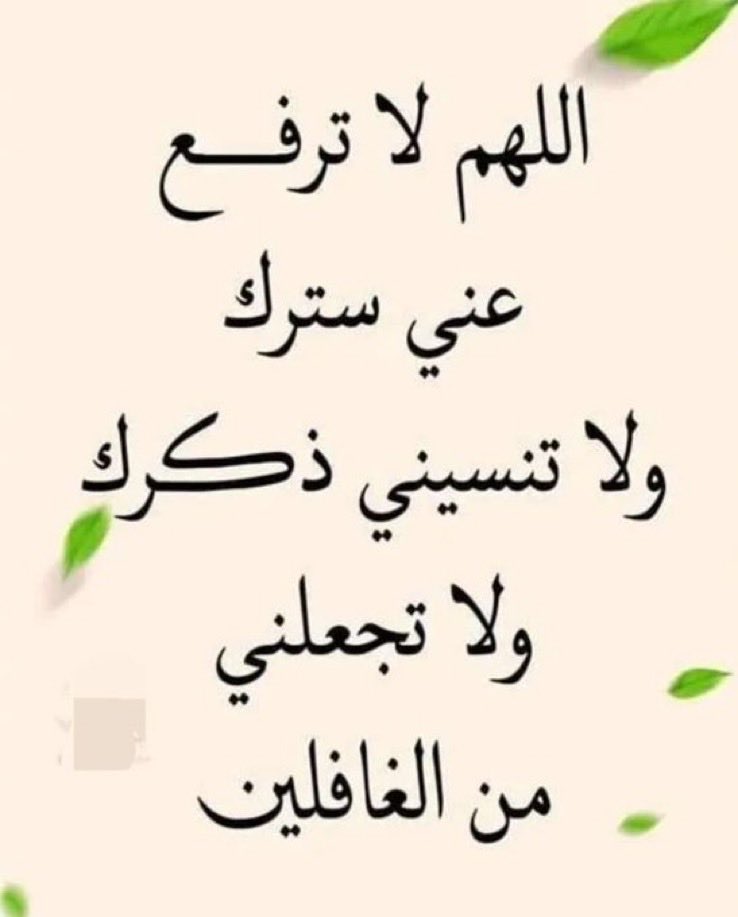 اللهم لا ترفع
عني سترك
ولا تنسيني ذكرك
ولا تجعلني
من الغافلين